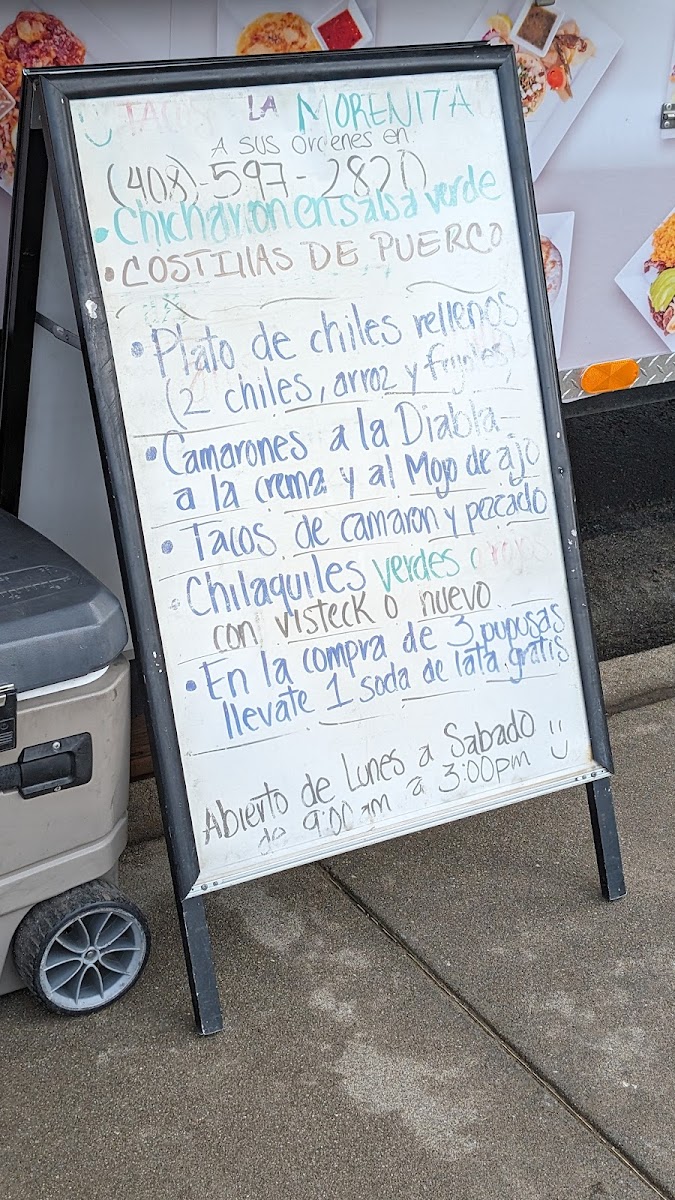 TACOS LA MORENITA
A SUS ORDENES en
(408)-597-2820
• Chicharron en salsa verde
• COSTILLAS DE PUERCO
• Plato de chiles rellenos
(2 chiles, arroz y frijoles)
• Camarones a la Diabla-
a la crema y al Mojo de ajo
• Tacos de camaron y pezcado
• Chilaquiles verdes o rojos
con visteck o huevo
• En la compra de 3 pupusas
llevate 1 soda de lata gratis
Abierto de Lunes a Sabado
de 9:00am a 3:00pm